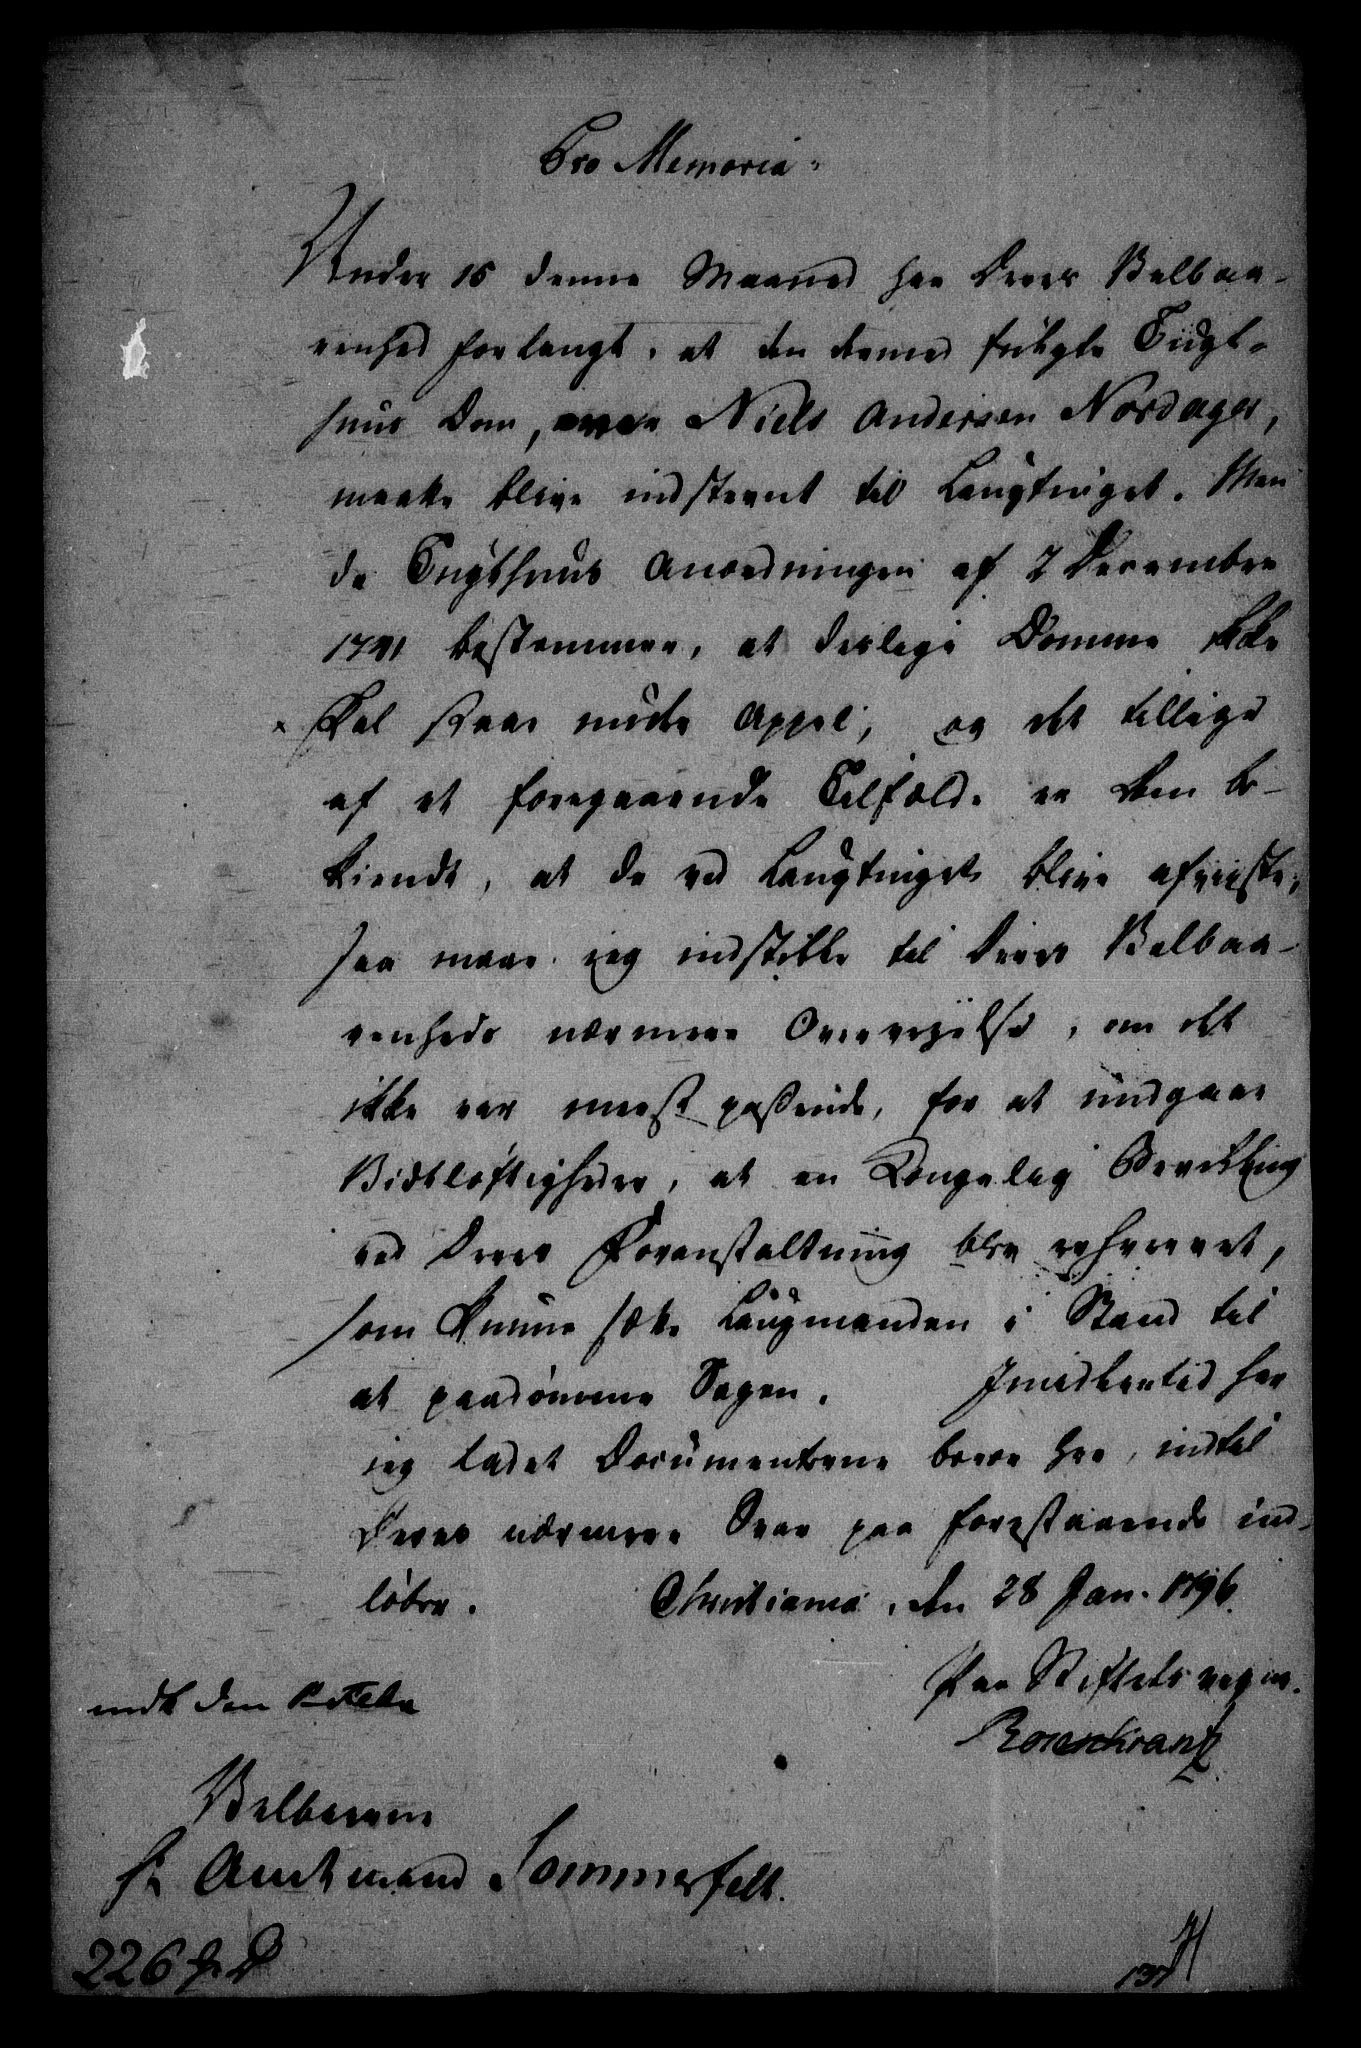 Pro Memoria.
Under 15 denne Maaned har Deres Velbaa-
renhed forlangt, at den herved fulgte Tugt-
huus Dom, over Niels Andersen Nordager,
maatte blive indstevnt til Laugtinget. Men
da Tugthuus Anordningen af 2 December
1741 bestemmer, at deslige Domme ikke
skal staae under Appel, og det tillige
af et foregaaende Tilfælde er dem be-
kiendt, at de ved Laugtinget blive afviiste,
saa maae jeg indstille til Deres Velbaa-
renheds nærmere Overveyelse, om det
ikke var meest passende, for at undgaae
Vidtløftigheder, at en Kongelig Bevilling
ved Deres Foranstaltning blev erhvervet,
som kunne sætte Laugmanden i Stand til
at paadømme Sagen. Imidlertid har
jeg ladet Documenterne beroe her, indtil
Deres nærmere Svar paa forestaaende ind-
løber. Christiania, den 28 Jan. 1796.
Paa Stiftets vegne.
Rosenkrantz
indt den
Velbaarne
Hr Amtmand Sommerfelt.
226
137